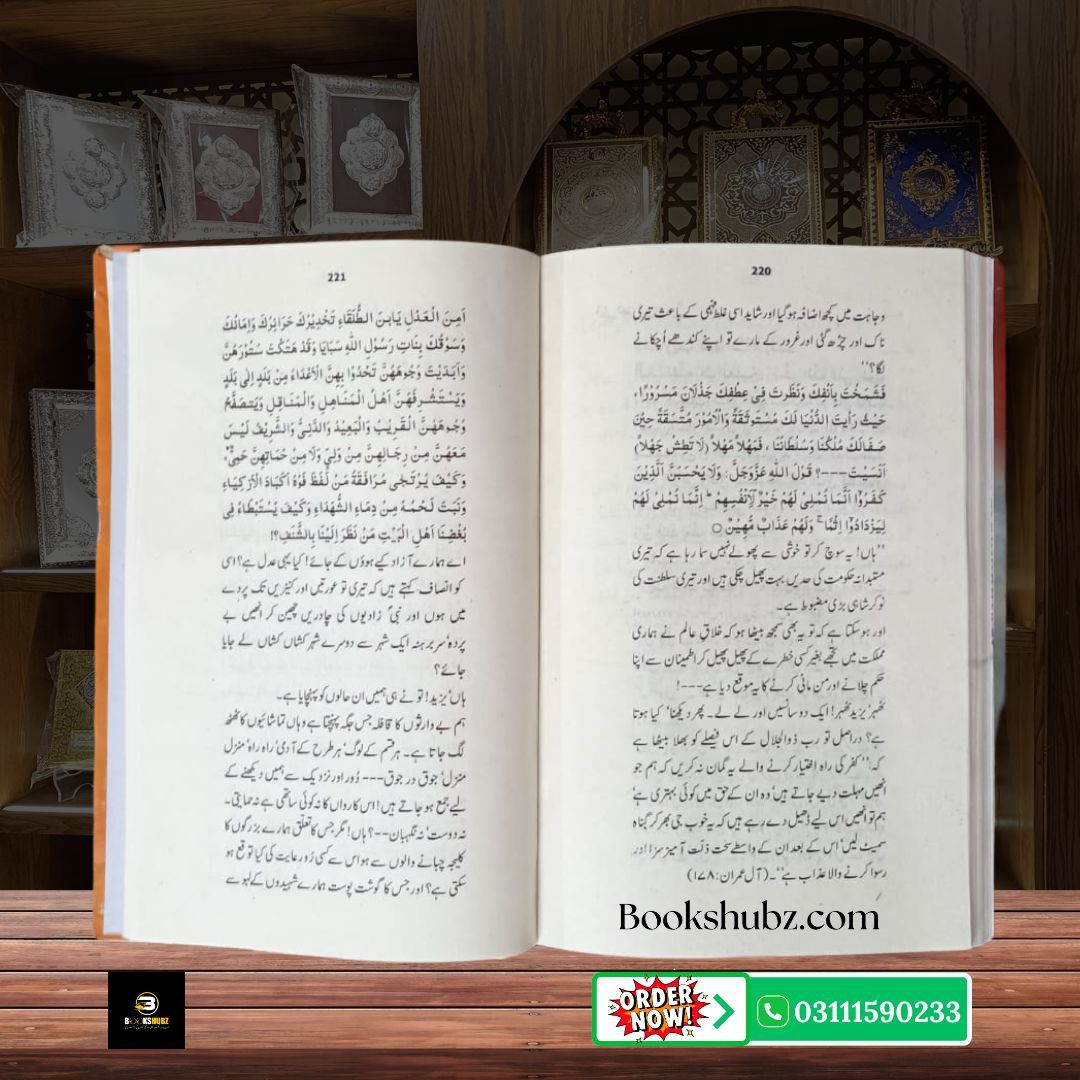 220
وجاہت میں کچھ اضافہ ہو گیا اور شاید اسی غلط فہمی کے باعث تیری
ناک اور چڑھ گئی اور غرور کے مارے تو اپنے کندھے اُچکانے
لگا؟"
فَشَمَخْتَ بِاَنْفِكَ وَنَظَرْتَ فِیْ عِطْفِكَ جَذْلَانَ مَسْرُوْرًا،
حَیْثُ رَاَیْتَ الدُّنْیَا لَكَ مُسْتَوْثِقَةً وَالْاُمُوْرَ مُتَّسِقَةً حِیْنَ
صَفَالَكَ مُلْكُنَا وَسُلْطَانُنَا ، فَمَهْلاً مَهْلاً (لَا تَطِشْ جَهْلاً)
اَنَسِیْتَ---؟ قَوْلَ اللهِ عَزَّوَجَلَّ: وَلَا یَحْسَبَنَّ الَّذِیْنَ
كَفَرُوْٓا اَنَّمَا نُمْلِیْ لَهُمْ خَیْرٌ لِّاَنْفُسِهِمْ ؕ اِنَّمَا نُمْلِیْ لَهُمْ
لِیَزْدَادُوْٓا اِثْمًا ۚ وَلَهُمْ عَذَابٌ مُّهِیْنٌ ○
"ہاں! یہ سوچ کر تو خوشی سے پھولے نہیں سما رہا ہے کہ تیری
مستبدانہ حکومت کی حدیں بہت پھیل چکی ہیں اور تیری سلطنت کی
نوکر شاہی بڑی مضبوط ہے۔
اور ہو سکتا ہے کہ تو یہ بھی سمجھ بیٹھا ہو کہ خلاقِ عالم نے ہماری
مملکت میں تجھے بغیر کسی خطرے کے پھیل پھیل کر اطمینان سے اپنا
حکم چلانے اور من مانی کرنے کا یہ موقع دیا ہے---!
ٹھہر یزید ٹھہر! ایک دو سانسیں اور لے لے۔ پھر دیکھنا، کیا ہوتا
ہے؟ دراصل تو ربِ ذوالجلال کے اس فیصلے کو بھلا بیٹھا ہے
کہ: "کفر کی راہ اختیار کرنے والے یہ گمان نہ کریں کہ ہم جو
انھیں مہلت دیے جاتے ہیں، وہ ان کے حق میں کوئی بہتری ہے،
ہم تو انھیں اس لیے ڈھیل دے رہے ہیں کہ یہ خوب جی بھر کر گناہ
سمیٹ لیں، اس کے بعد ان کے واسطے سخت ذلت آمیز سزا اور
رسوا کرنے والا عذاب ہے"۔ (آل عمران: ۱۷۸)
221
اَمِنَ الْعَدْلِ یَابْنَ الطُّلَقَاءِ تَخْدِیْرُكَ حَرَائِرَكَ وَاِمَائَكَ
وَسَوْقُكَ بَنَاتِ رَسُوْلِ اللهِ سَبَایَا وَقَدْ هَتَكْتَ سُتُوْرَهُنَّ
وَاَبْدَیْتَ وُجُوهَهُنَّ تَحْدُوْا بِهِنَّ الْاَعْدَاءُ مِنْ بَلَدٍ اِلٰی بَلَدٍ
وَیَسْتَشْرِفُهُنَّ اَهْلُ الْمَنَاهِلِ وَالْمَنَاقِلِ وَیَتَصَفَّحُ
وُجُوهَهُنَّ الْقَرِیْبُ وَالْبَعِیْدُ وَالدَّنِیُّ وَالشَّرِیْفُ لَیْسَ
مَعَهُنَّ مِنْ رِجَالِهِنَّ مِنْ وَلِیٍّ وَلَا مِنْ حُمَاتِهِنَّ حَمِیٌّ،
وَكَیْفَ یُرْتَجٰی مُرَاقَبَةُ مَنْ لَفَظَ فُوْهُ اَكْبَادَ الْاَزْكِیَاءِ
وَنَبَتَ لَحْمُهُ مِنْ دِمَاءِ الشُّهَدَاءِ وَكَیْفَ یُسْتَبْطَاءُ فِی
بُغْضِنَا اَهْلَ الْبَیْتِ مَنْ نَظَرَ اِلَیْنَا بِالشَّنَفِ؟!
اے ہمارے آزاد کیے ہوؤں کے جائے! کیا یہی عدل ہے؟ اسی
کو انصاف کہتے ہیں کہ تیری تو عورتیں اور کنیزیں تک پردے
میں ہوں اور نبیؐ زادیوں کی چادریں چھین کر انھیں بے
پردہ، سر برہنہ ایک شہر سے دوسرے شہر کشاں کشاں لے جایا
جائے؟
ہاں یزید! تو نے ہی ہمیں ان حالوں کو پہنچایا ہے۔
ہم بے وارثوں کا قافلہ جس جگہ پہنچتا ہے وہاں تماشائیوں کا ٹھٹھ
لگ جاتا ہے۔ ہر قسم کے لوگ، ہر طرح کے آدمی، راہ راہ، منزل
منزل، جوق در جوق--- دُور اور نزدیک سے ہمیں دیکھنے کے
لیے جمع ہو جاتے ہیں! اس کارواں کا نہ کوئی ساتھی ہے نہ حمایتی۔
نہ دوست، نہ نگہبان--؟ ہاں! مگر جس کا تعلق ہمارے بزرگوں کا
کلیجہ چبانے والوں سے ہو اس سے کسی رُو رعایت کی کیا توقع ہو
سکتی ہے؟ اور جس کا گوشت پوست ہمارے شہیدوں کے لہو سے
Bookshubz.com
B
BOOKSHUBZ
ORDER
NOW!
03111590233